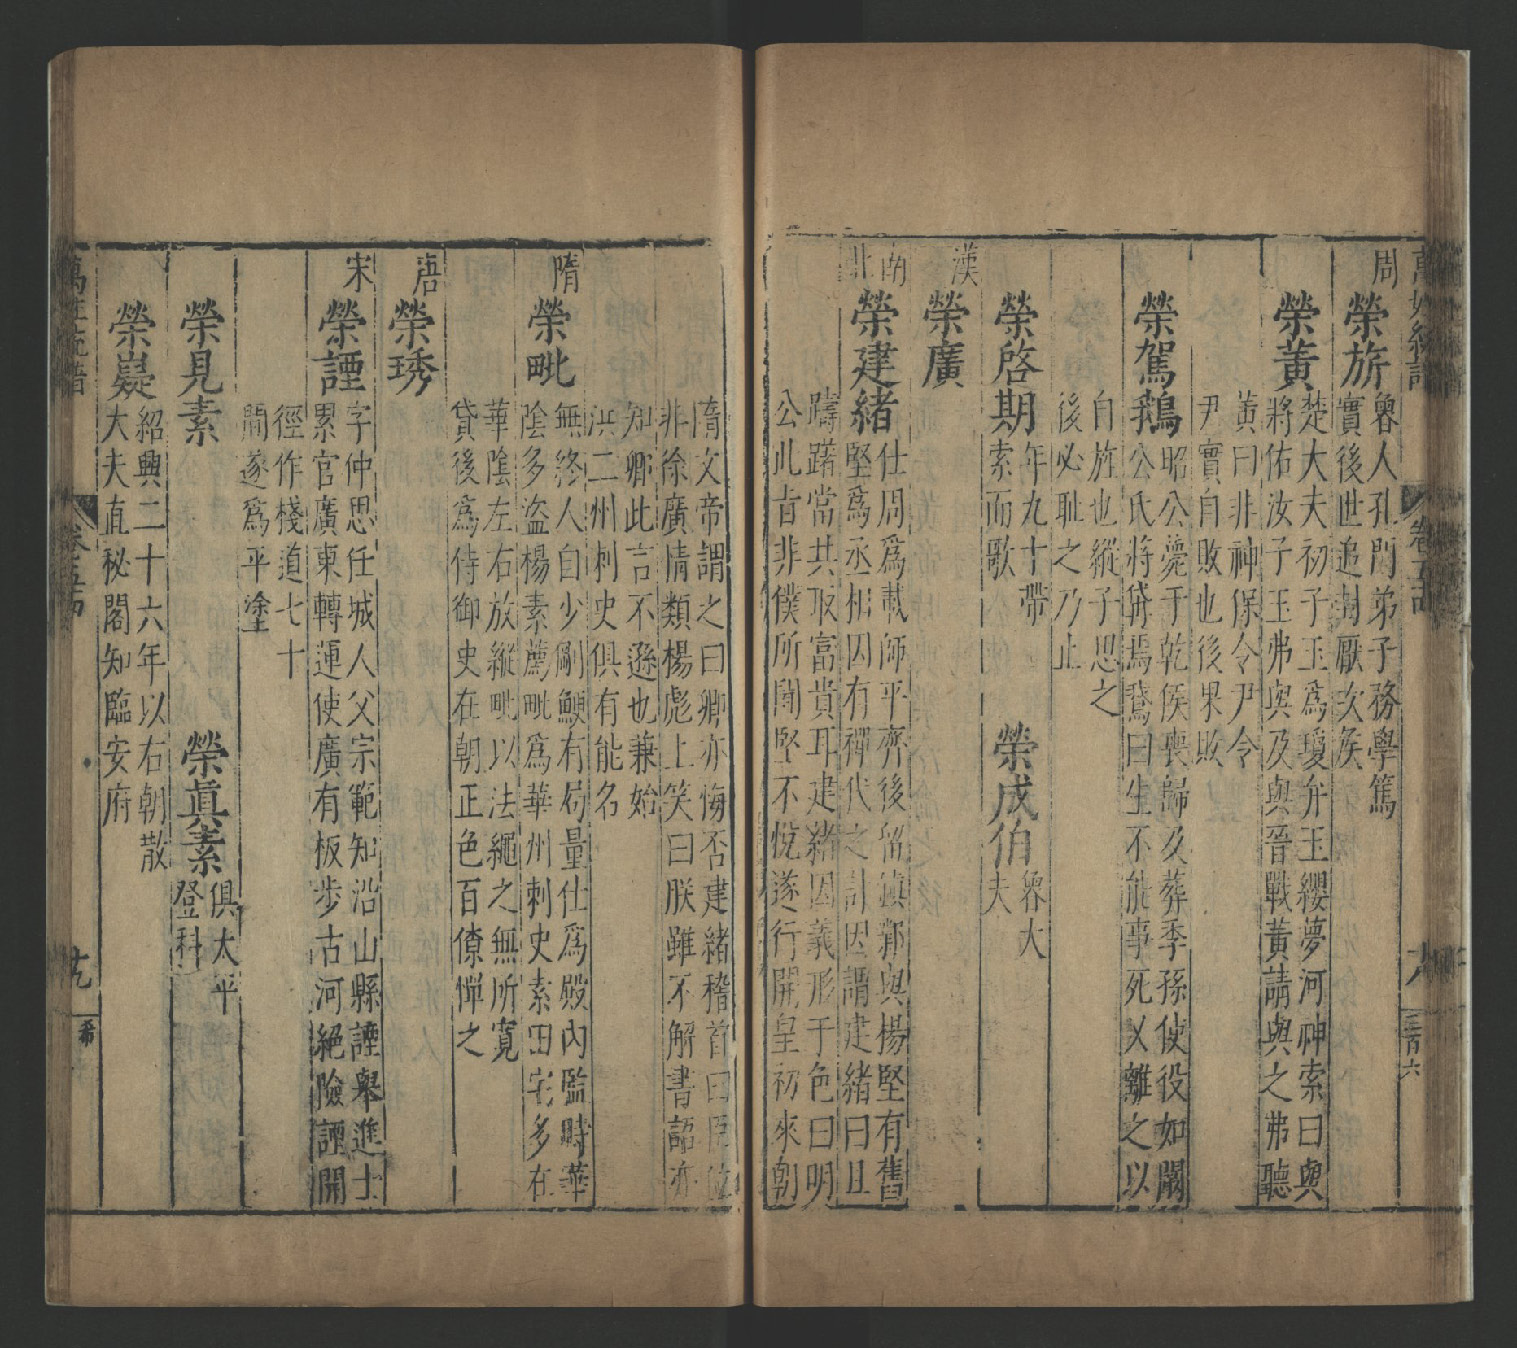 萬姓統譜
卷五十四
周
榮旂
魯人孔門弟子務學篤
實後世追封厭次侯
榮黃
楚大夫初子玉爲瓊弁玉纓夢河神索曰與
將佑汝子玉弗與及與晉戰黃請與之弗聽
黃曰非神保令尹令
尹實自敗也後果敗
榮駕鵝
昭公薨于乾侯喪歸及葬季孫使役如闞
公氏將溝焉鵞曰生不能事死又離之以
自旌也縱子忍之
後必耻之乃止
榮啓期
年九十帶
索而歌
榮成伯
魯大
夫
漢
榮廣
南北
榮建緒
仕周爲載師平齊後留鎮鄴與楊堅有舊
堅爲丞相因有禪代之計因謂建緒曰且
躊躇當共取富貴耳建緒因義形于色曰明
公此旨非僕所聞堅不悅遂行開皇初來朝
隋文帝謂之曰卿亦悔否建緒稽首曰臣位
非徐廣情類楊彪上笑曰朕雖不解書語亦
知卿此言不遜也兼始
洪二州刺史俱有能名
隋
榮毗
無終人自少剛鯁有局量仕爲殿內監時華
陰多盜楊素薦毗爲華州刺史素田宅多在
華陰左右放縱毗以法繩之無所寬
貸後爲侍御史在朝正色百僚憚之
唐
榮琇
宋
榮諲
字仲思任城人父宗範知沿山縣諲舉進士
累官廣東轉運使廣有板步古河絕險諲開
徑作棧道七十
間遂爲平塗
榮見素
榮眞素
俱太平
登科
榮嶷
紹興二十六年以右朝散
大夫直秘閣知臨安府
萬姓統譜
卷五十四
十九